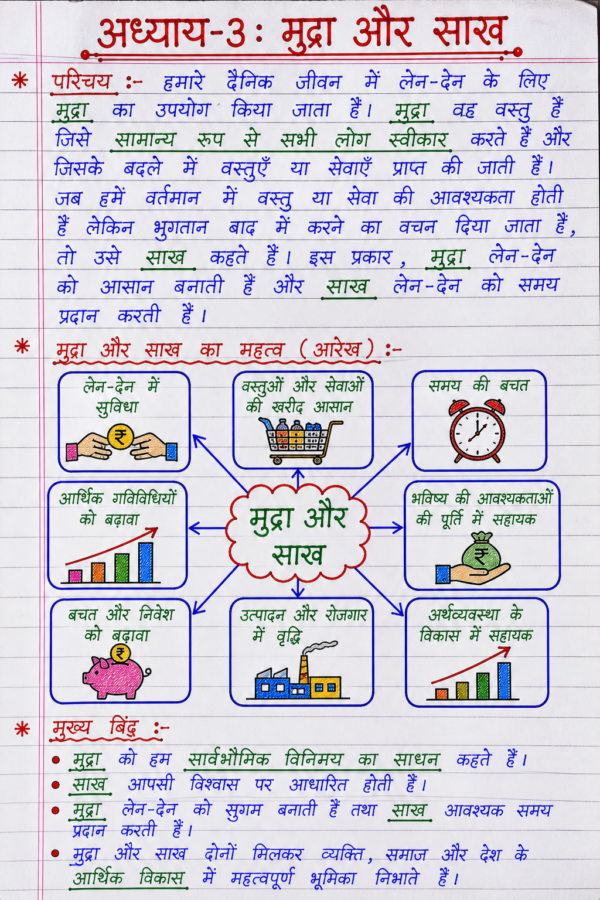 अध्याय-3: मुद्रा और साख
* परिचय :- हमारे दैनिक जीवन में लेन-देन के लिए
मुद्रा का उपयोग किया जाता हैं। मुद्रा वह वस्तु हैं
जिसे सामान्य रूप से सभी लोग स्वीकार करते हैं और
जिसके बदले में वस्तुएँ या सेवाएँ प्राप्त की जाती हैं।
जब हमें वर्तमान में वस्तु या सेवा की आवश्यकता होती
हैं लेकिन भुगतान बाद में करने का वचन दिया जाता हैं,
तो उसे साख कहते हैं। इस प्रकार, मुद्रा लेन-देन
को आसान बनाती हैं और साख लेन-देन को समय
प्रदान करती हैं।
* मुद्रा और साख का महत्व (आरेख) :-
लेन-देन में
सुविधा
₹
वस्तुओं और सेवाओं
की खरीद आसान
समय की बचत
आर्थिक गविविधियों
को बढ़ावा
मुद्रा और
साख
भविष्य की आवश्यकताओं
की पूर्ति में सहायक
₹
बचत और निवेश
को बढ़ावा
₹
उत्पादन और रोजगार
में वृद्धि
अर्थव्यवस्था के
विकास में सहायक
* मुख्य बिंदु :-
• मुद्रा को हम सार्वभौमिक विनिमय का साधन कहते हैं।
• साख आपसी विश्वास पर आधारित होती हैं।
• मुद्रा लेन-देन को सुगम बनाती हैं तथा साख आवश्यक समय
प्रदान करती हैं।
• मुद्रा और साख दोनों मिलकर व्यक्ति, समाज और देश के
आर्थिक विकास में महत्वपूर्ण भूमिका निभाते हैं।